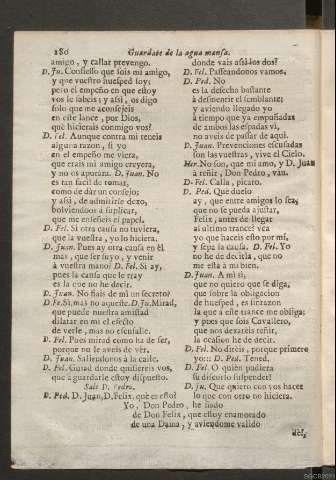 180 Guardate de la agua mansa.
amigo, y callar prevengo.
D. Ju. Confiesso que sois mi amigo,
y que vuestro huesped soy;
pero el empeño en que estoy
vos le sabeis; y assi, os digo
solo que me aconsejeis
en este lance, por Dios,
què hicierais conmigo vos?
D. Fel. Aunque contra mi teneis
alguna razon, si yo
en el empeño me viera,
que erais mi amigo creyera,
y no os apurára. D. Juan. No
es tan facil de tomar,
como de dár un consejo;
y assi, de admitirle dexo,
bolviendoos à suplicar,
que me enseñeis el papel.
D. Fel. Si otra causa no tuviera,
que la vuestra, yo lo hiciera.
D. Juan. Pues ay otra causa en èl
mas, que ser suyo, y venir
à vuestra mano? D. Fel. Si ay,
pues la causa que le tray
es la que no he decir.
D. Juan. No fiais de mi un secreto?
D. Fe. Si, mas no aqueste. D. Ju. Mirad,
que puede nuestra amistad
dilatar en mi el efecto
de verle, mas no escusalle.
D. Fel. Pues mirad como ha de ser,
porque no le aveis de vèr.
D. Juan. Saliendonos à la calle.
D. Fel. Guiad donde quisiereis vos,
que à guardarle estoy dispuesto.
Sale D. Pedro.
D. Ped. D. Juan, D. Felix, què es esto?
donde vais assi los dos?
D. Fel. Passeandonos vamos.
D. Ped. No
es la desecha bastante
à desmentir el semblante;
y aviendo llegado yo
à tiempo que ya empuñadas
de ambos las espadas vi,
no aveis de passar de aqui.
D. Juan. Prevenciones escusadas
son las vuestras, vive el Cielo.
Her. No son, que mi amo, y D. Juan
à reñir, Don Pedro, ván.
D. Fel. Calla, picaro.
D. Ped. Què duelo
ay, que entre amigos lo sea,
que no se pueda ajustar,
Felix, antes de llegar
al ultimo trance? vea
yo que haceis esto por mi,
y sepa la causa. D. Fel. Yo
no he de decirla, que no
me està à mi bien.
D. Juan. A mi si,
que no quiero que se diga,
que sobre la obligacion
de huesped, es sinrazon
la que à este trance me obliga;
y pues que sois Cavallero,
que nos dexareis reñir,
la ocasion he de decir.
D. Fel. No direis, porque primero
yo:: D. Ped. Tened.
D. Fel. O quièn pudiera
su discurso suspender!
D. Ju. Que quiero con vos hacer
lo que con otro no hiciera.
Yo, Don Pedro, he sido
de Don Felix, que estoy enamorado
de una Dama, y aviendome valido
del,
SGCB2021